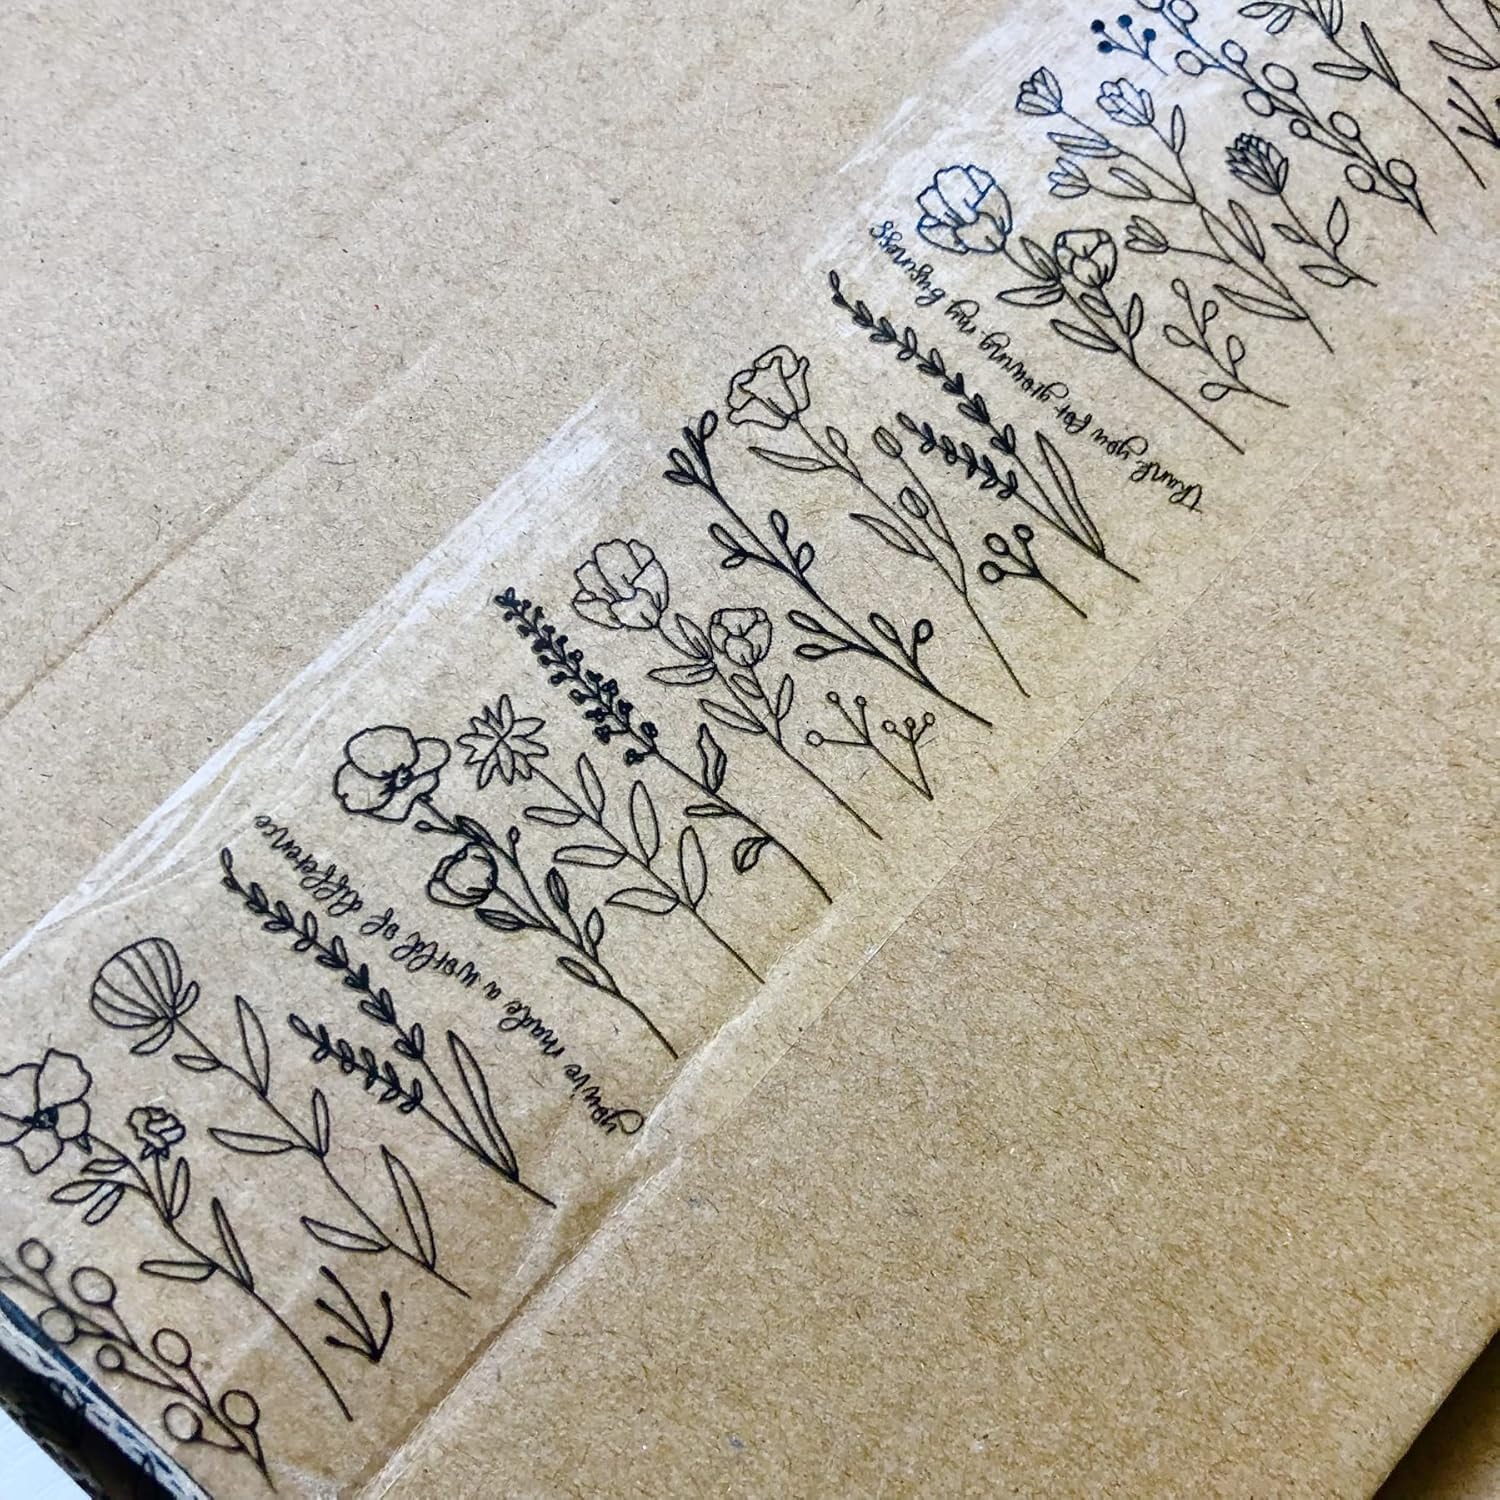 you've made a world of difference
thank you for growing my byuness